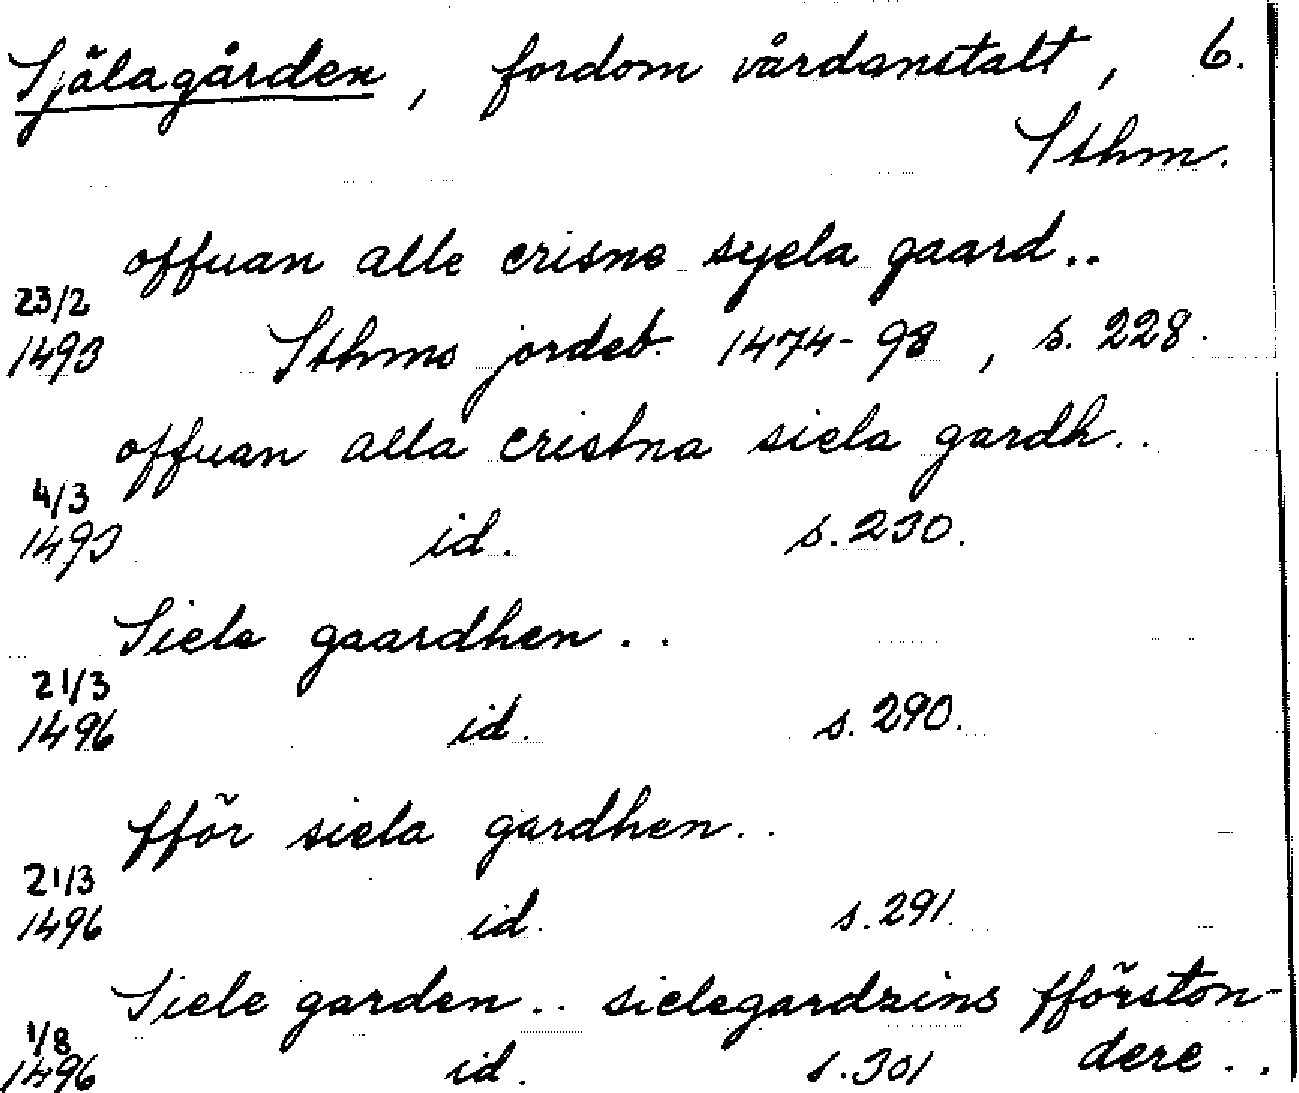 Själagården, fordom vårdanstalt, 6.
Sthm.
offuan alle crisne syela gaard..
23/2
1493 Sthms jordeb. 1474-98, s. 228.
offuan alla cristna siela gardh..
4/3
1493 id. s. 230.
Siele gaardhen..
21/3
1496 id. s. 290.
fför siela gardhen..
21/3
1496 id. s. 291.
Siele garden.. sielegardzins fförston-
dere..
1/8
1496 id. s. 301